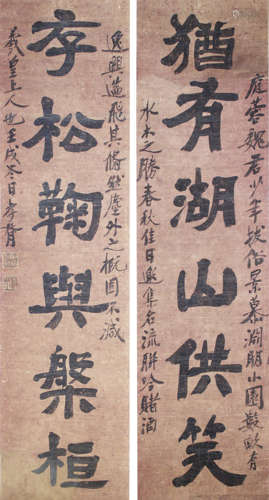 庭蓉魏君少年拔俗景慕淵明小園數畝有
猶有湖山供笑
水木之勝春秋佳日邀集名流聯吟賭酒
逸興遄飛其翛然塵外之概固不減
存松鞠與槃桓
羲皇上人也壬戌冬日孝胥